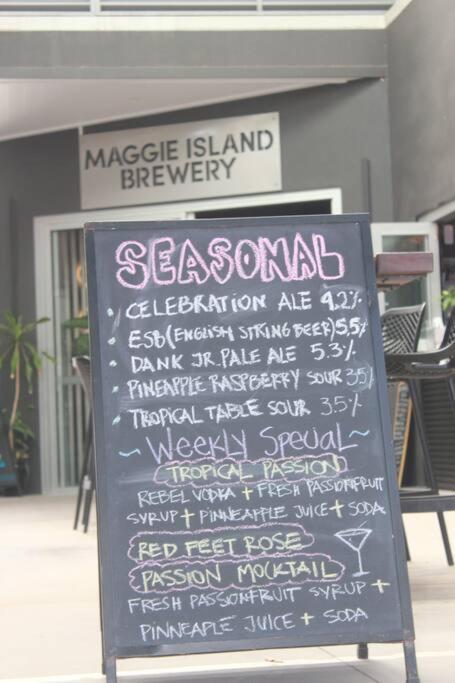 MAGGIE ISLAND
BREWERY
SEASONAL
CELEBRATION ALE 4.2%
ESB (ENGLISH STRING BEER) 5.5%
DANK JR. PALE ALE 5.3%
PINEAPPLE RASPBERRY SOUR 3.5%
TROPICAL TABLE SOUR 3.5%
~ Weekly Special ~
TROPICAL PASSION
REBEL VODKA + FRESH PASSIONFRUIT
SYRUP + PINNEAPLE JUICE + SODA
RED FEET ROSE
PASSION MOCKTAIL
FRESH PASSIONFRUIT SYRUP +
PINNEAPLE JUICE + SODA